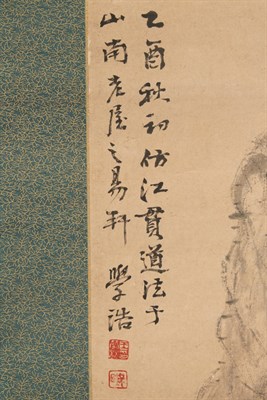 乙酉秋初仿江貫道法于
山南老屋之易軒 學浩